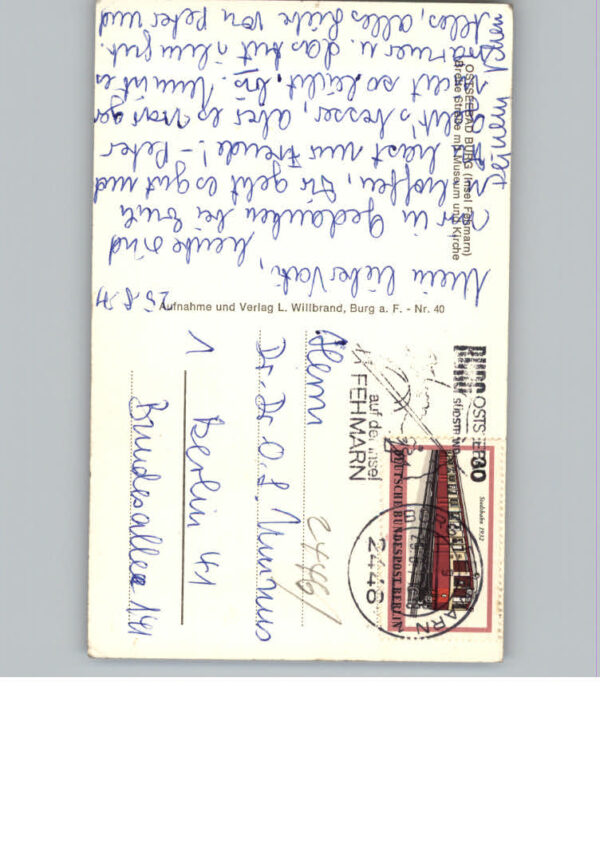 25.8.71
Mein lieber Vati,
heute sind
wir in Gedanken bei Euch
u. hoffen, Dir geht es gut und
Du hast nur Freude! - Peter
geht's besser, aber es war gar
nicht so leicht, bis. Nun ist es
warmer u. das tut ihm gut.
Alles, alles Liebe von Peter und
OSTSEEBAD BURG (Insel Fehmarn)
Breite Straße mit Museum und Kirche
Aufnahme und Verlag L. Willbrand, Burg a. F. - Nr. 40
auf der Insel
FEHMARN
30
Stadtbahn 1932
DEUTSCHE BUNDESPOST BERLIN
2448
2448/
Herrn
Dr. Dr. O. L.
1 Berlin 41
Bundesallee 141